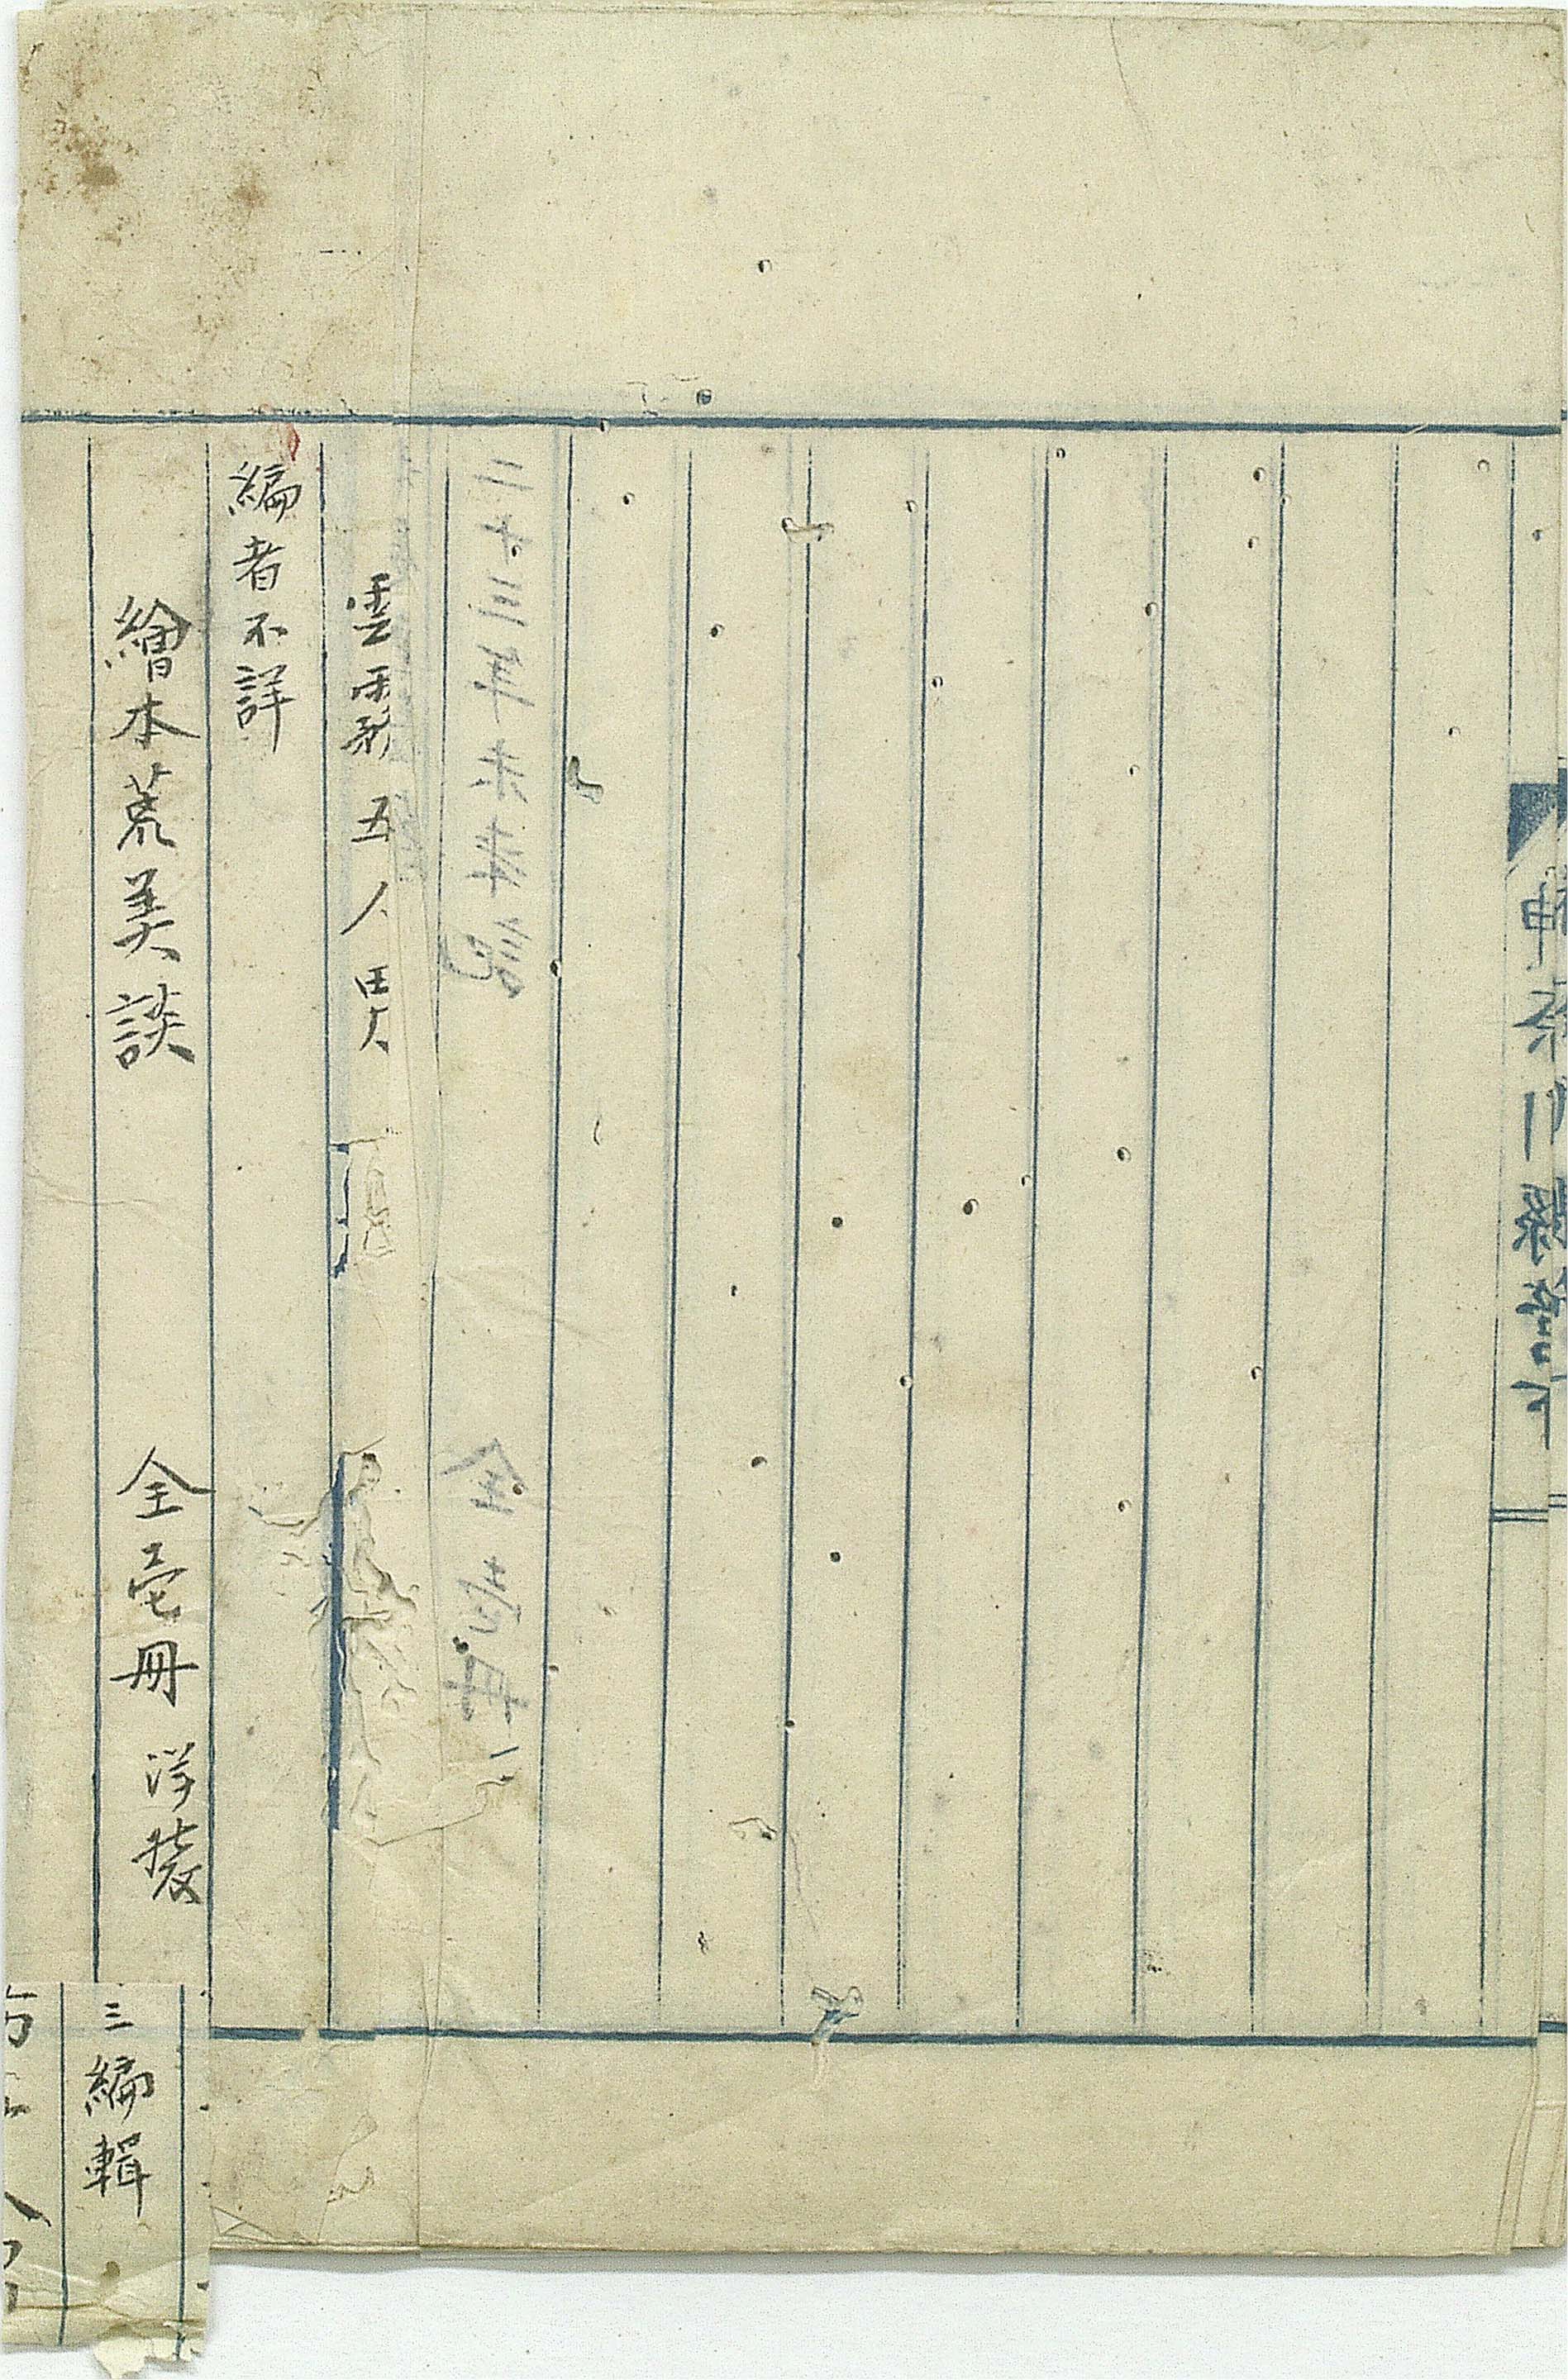 神奈川縣
二十三年未来記 全壱冊
雲霧五人男
編者不詳
繪本荒美談 全壱冊 洋装
三編輯